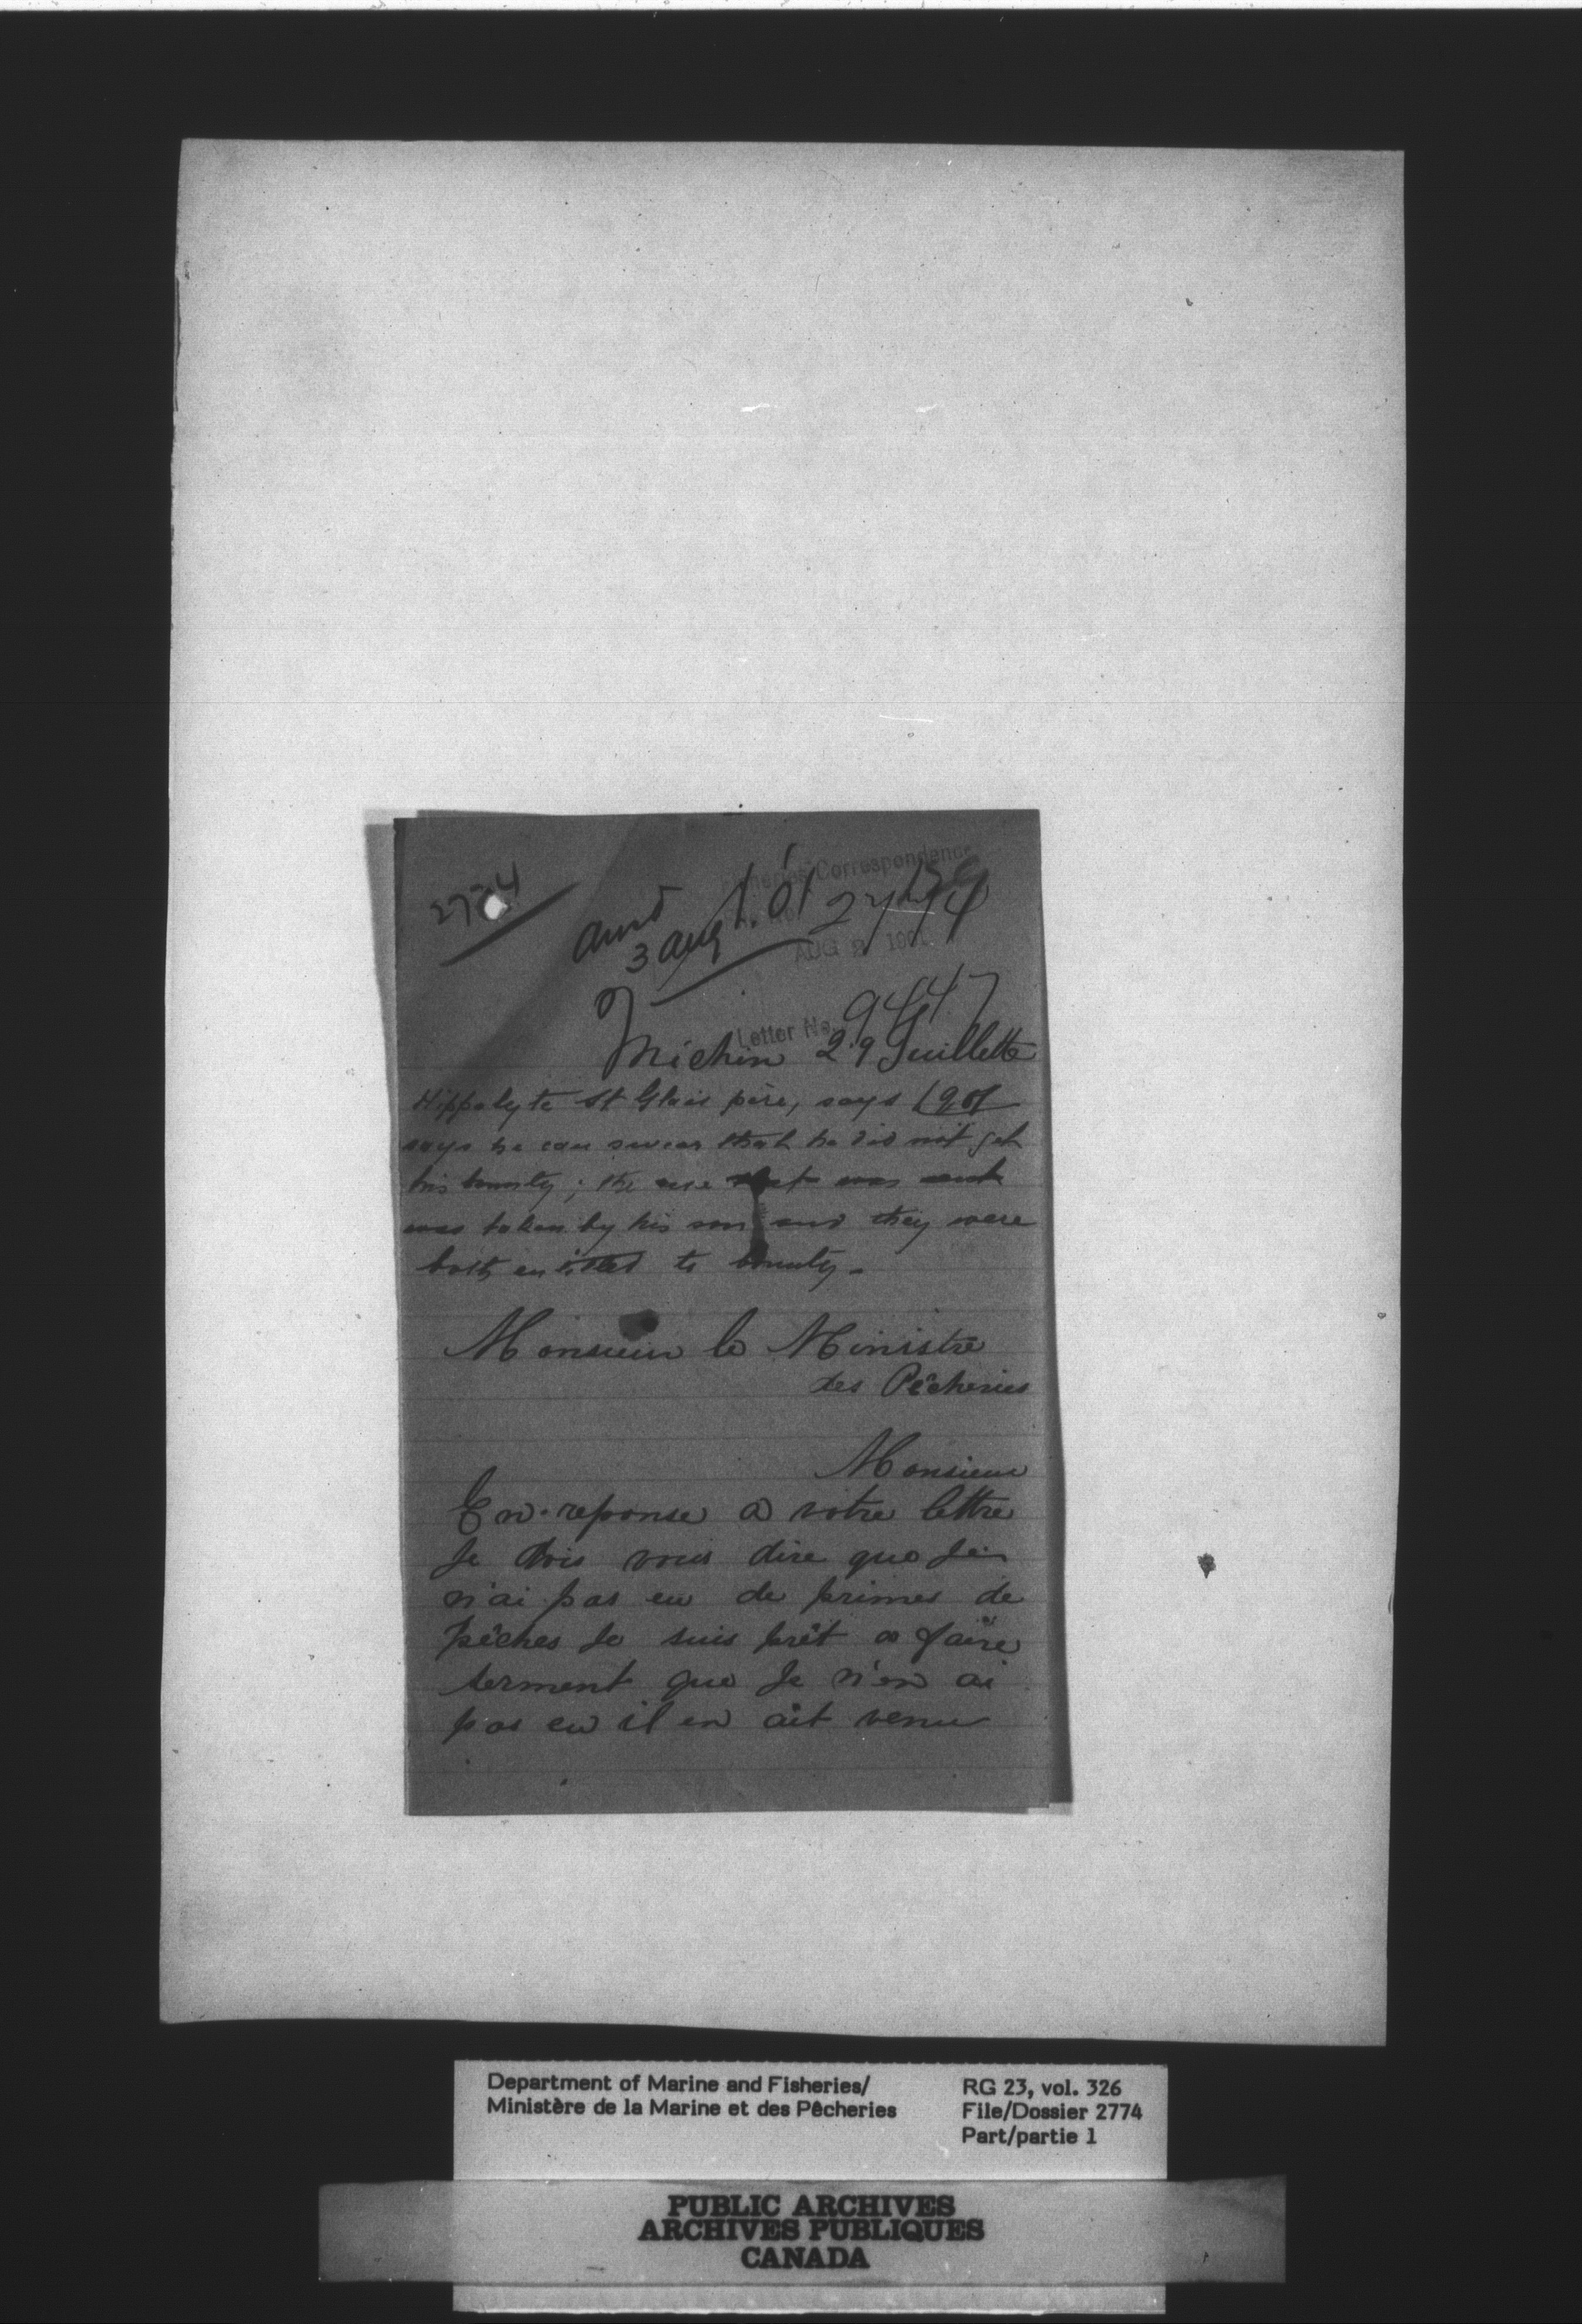 2774
ansd
3 aug 1.01
Fisheries Correspondence
2774
AUG 2 1901
Letter No. 9447
Michin 29 Juillette
Hippolyte St Glais père, says 1901
says he can swear that he did not get
his bounty; the one that was sent
was taken by his son and they were
both entitled to bounty.
Monsieur le Ministre
des Pêcheries
Monsieur
En reponse a votre lettre
Je dois vous dire que Je
n'ai pas eu de primes de
pêches Je suis prêt a faire
serment que Je n'en ai
pas eu il en ait venu
Department of Marine and Fisheries/
Ministère de la Marine et des Pêcheries
RG 23, vol. 326
File/Dossier 2774
Part/partie 1
PUBLIC ARCHIVES
ARCHIVES PUBLIQUES
CANADA